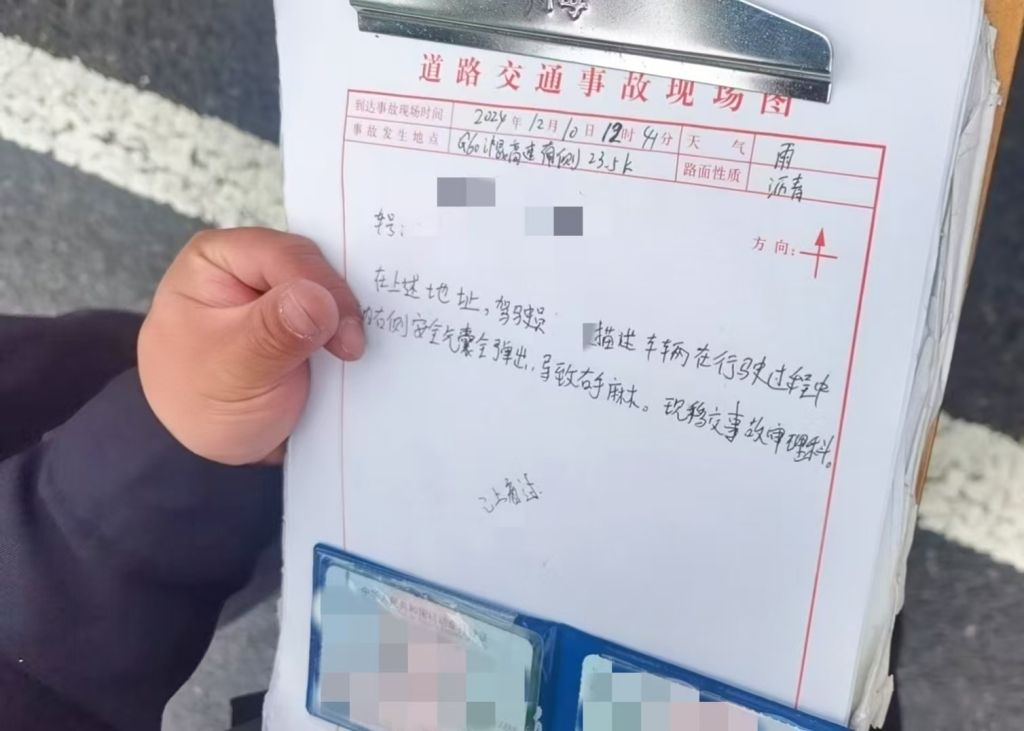 道路交通事故现场图
到达事故现场时间 2024年12月10日12时41分 天气 雨
事故发生地点 G60沪昆高速 侧 23.5K 路面性质 沥青
方向:
车号:
在上述地址,驾驶员 描述车辆在行驶过程中
右侧安全气囊全弹出,导致右手麻木。现移交事故审理科。